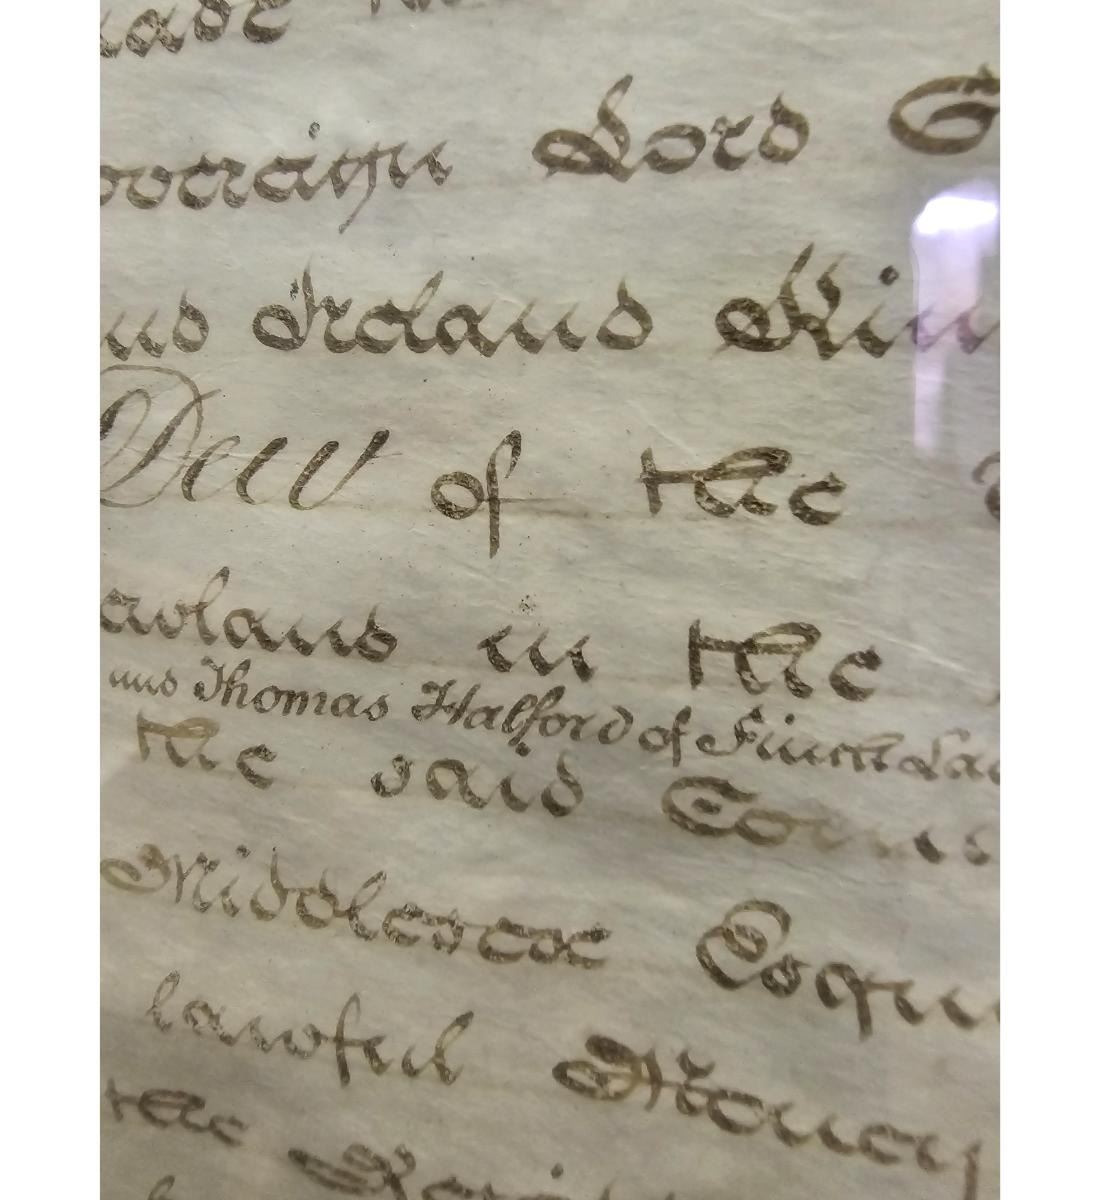 made
overaign Lord G
nd Ireland Kin
Dew of the
avland in the
and Thomas Halford of Finch La
the said Corne
Middlesex Esqu
lawful Money
the